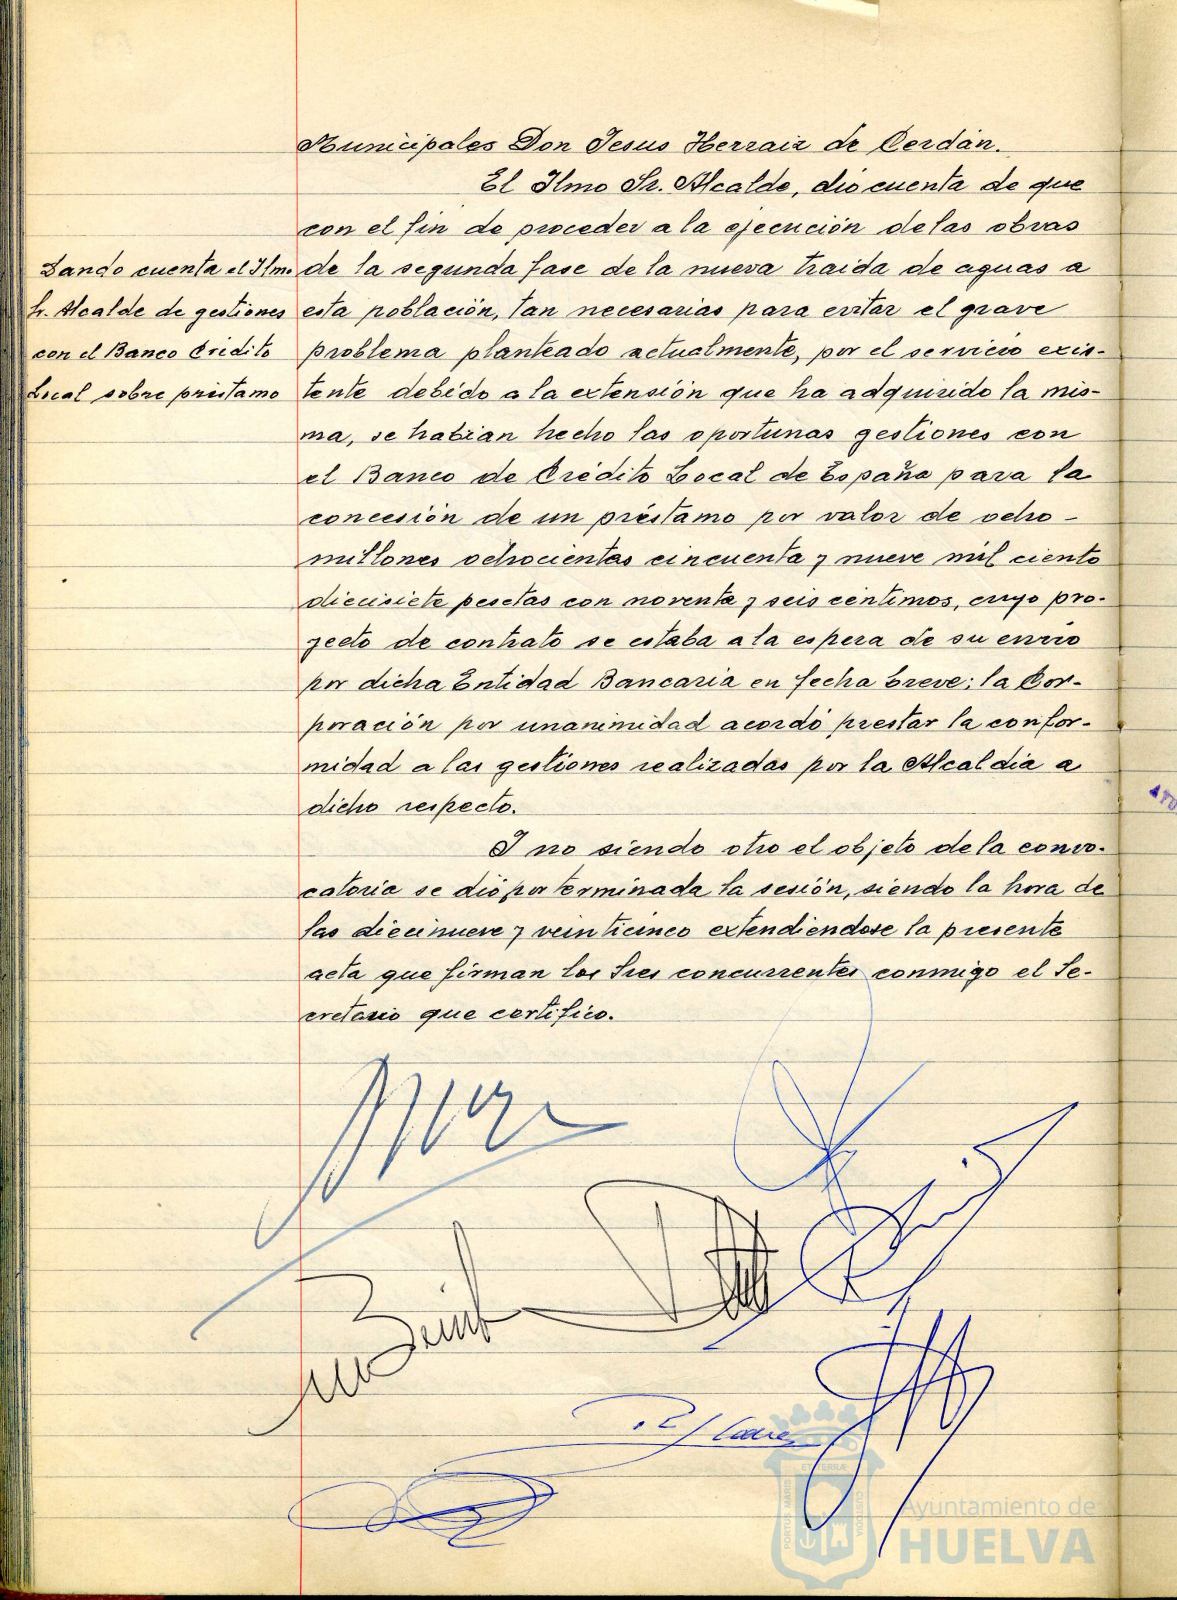 Municipales Don Jesus Herraiz de Cerdán.
El Ilmo Sr. Alcalde, dió cuenta de que
con el fin de proceder a la ejecución de las obras
de la segunda fase de la nueva traida de aguas a
esta población, tan necesarias para evitar el grave
problema planteado actualmente, por el servicio exis-
tente debido a la extensión que ha adquirido la mis-
ma, se habian hecho las oportunas gestiones con
el Banco de Crédito Local de España para la
concesión de un préstamo por valor de ocho
millones ochocientas cincuenta y nueve mil ciento
diecisiete pesetas con noventa y seis céntimos, cuyo pro-
yecto de contrato se estaba a la espera de su envio
por dicha Entidad Bancaria en fecha breve; la Cor-
poración por unanimidad acordó prestar la confor-
midad a las gestiones realizadas por la Alcaldia a
dicho respecto.
Y no siendo otro el objeto de la convo-
catoria se dió por terminada la sesión, siendo la hora de
las diecinueve y veinticinco extendiendose la presente
acta que firman los Sres concurrentes conmigo el Se-
cretario que certifico.
Dando cuenta el Ilmo
Sr. Alcalde de gestiones
con el Banco Crédito
Local sobre préstamo
PORTUS MARIS
ET TERRÆ
CUSTODIA
Ayuntamiento de
HUELVA